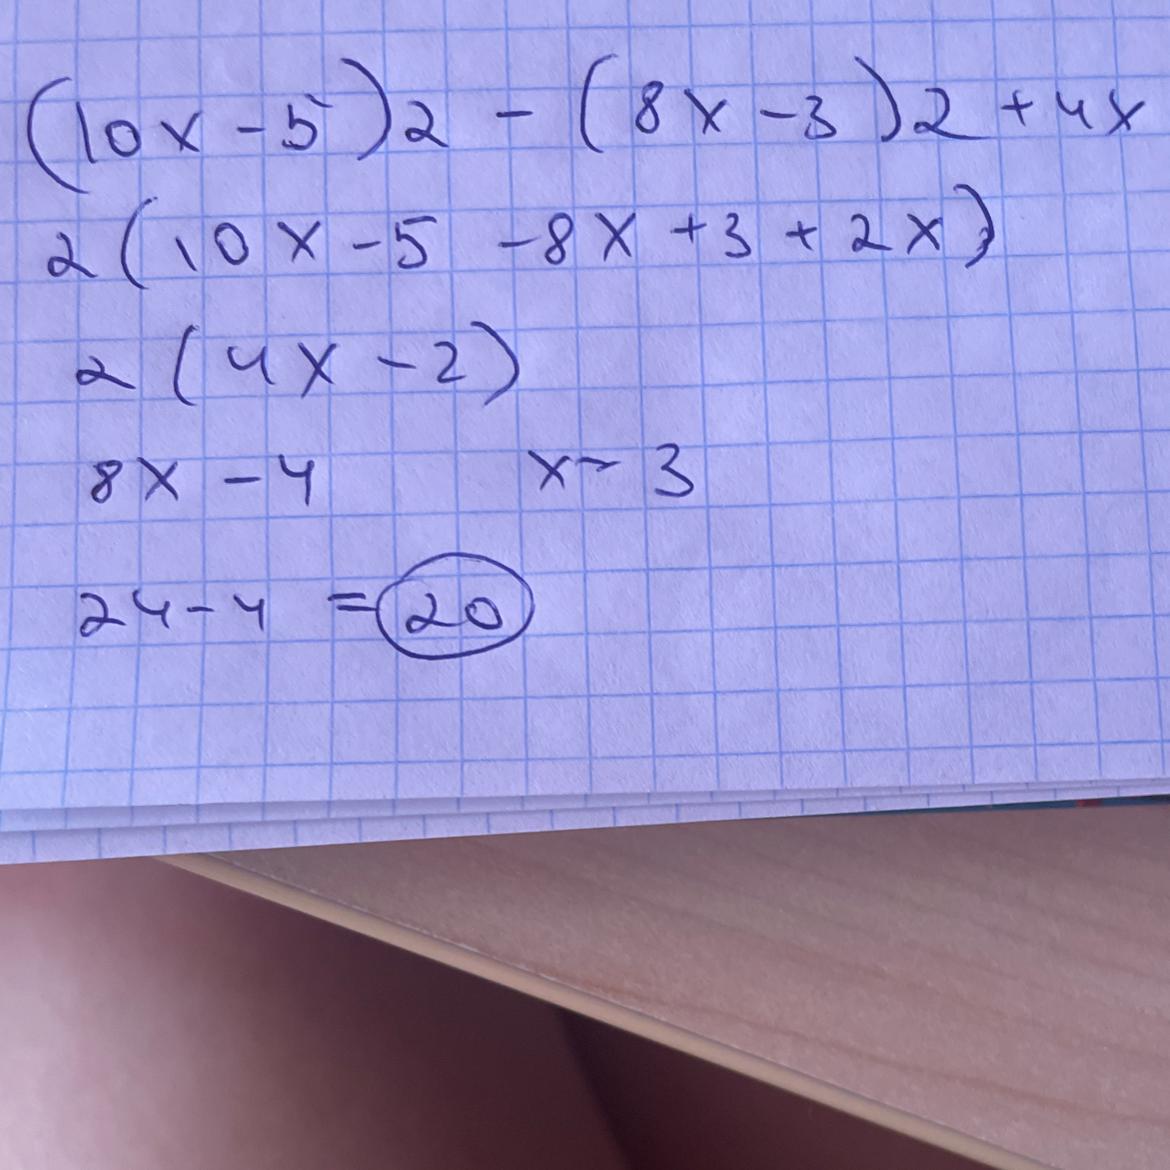 (10x - 5)2 - (8x - 3)2 + 4x
2(10x - 5 - 8x + 3 + 2x)
2(4x - 2)
8x - 4 x - 3
24 - 4 = 20